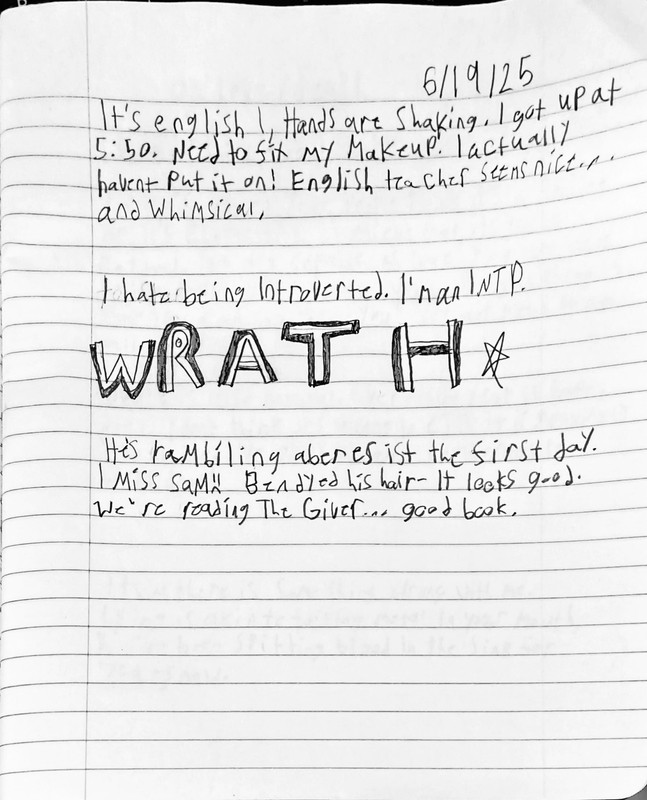 6/19/25
It's english 1, Hands are Shaking. I got up at
5:50. Need to fix my Makeup. I actually
havent put it on! English teacher seems nice....
and Whimsical.
I hate being Introverted. I'm an INTP.
WRATH
He's rambiling the first day.
I Miss Sam!! Ben dyed his hair- It looks good.
We're reading The Giver... good book.